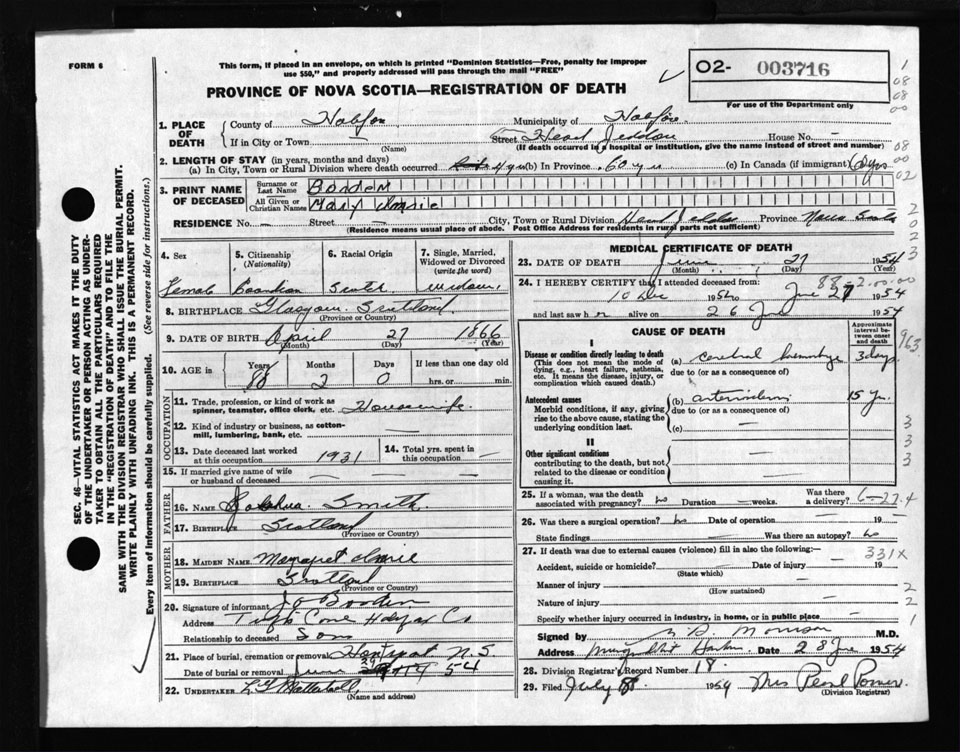 FORM 6
This form, if placed in an envelope, on which is printed "Dominion Statistics—Free, penalty for improper
use $50," and properly addressed will pass through the mail "FREE"
02- 003716
For use of the Department only
PROVINCE OF NOVA SCOTIA—REGISTRATION OF DEATH
1. PLACE OF DEATH
County of Halifax Municipality of Halifax
If in City or Town — Street Head Jeddore House No. —
(Name) (If death occurred in a hospital or institution, give the name instead of street and number)
2. LENGTH OF STAY (in years, months and days)
(a) In City, Town or Rural Division where death occurred 4 yrs (b) In Province 60 yrs (c) In Canada (if immigrant) 60 yrs
3. PRINT NAME OF DECEASED
Surname or Last Name
All Given or Christian Names Mary
RESIDENCE No. — Street — City, Town or Rural Division Head Jeddore Province Nova Scotia
(Residence means usual place of abode. Post Office Address for residents in rural parts not sufficient)
SEC. 46—VITAL STATISTICS ACT MAKES IT THE DUTY
OF THE UNDERTAKER OR PERSON ACTING AS UNDER-
TAKER TO OBTAIN ALL THE PARTICULARS REQUIRED
IN THE "REGISTRATION OF DEATH" AND TO FILE THE
SAME WITH THE DIVISION REGISTRAR WHO SHALL ISSUE THE BURIAL PERMIT.
WRITE PLAINLY WITH UNFADING INK. THIS IS A PERMANENT RECORD.
Every item of information should be carefully supplied. (See reverse side for instructions.)
4. Sex
Female
5. Citizenship
(Nationality)
Canadian
6. Racial Origin
7. Single, Married,
Widowed or Divorced
(write the word)
widow
8. BIRTHPLACE Glasgow Scotland
(Province or Country)
9. DATE OF BIRTH April 27 1866
(Month) (Day) (Year)
10. AGE in
Years Months Days If less than one day old
88 2 0 hrs. or min.
OCCUPATION
11. Trade, profession, or kind of work as
spinner, teamster, office clerk, etc. Housewife
12. Kind of industry or business, as cotton-
mill, lumbering, bank, etc. —
13. Date deceased last worked
at this occupation 1931
14. Total yrs. spent in
this occupation —
15. If married give name of wife
or husband of deceased —
FATHER
16. NAME Smith
17. BIRTHPLACE Scotland
(Province or Country)
MOTHER
18. MAIDEN NAME Margaret
19. BIRTHPLACE Scotland
(Province or Country)
20. Signature of informant
Address Cove Halifax Co
Relationship to deceased Son
21. Place of burial, cremation or removal N.S
Date of burial or removal June 29 1954
22. UNDERTAKER
(Name and address)
MEDICAL CERTIFICATE OF DEATH
23. DATE OF DEATH June 27 1954
(Month) (Day) (Year)
24. I HEREBY CERTIFY that I attended deceased from:
10 Dec 1952 to June 27 1954
and last saw her alive on 26 June 1954
CAUSE OF DEATH
Approximate interval between onset and death
I
Disease or condition directly leading to death
(This does not mean the mode of
dying, e.g., heart failure, asthenia,
etc. It means the disease, injury, or
complication which caused death.)
(a) cerebral hemorrhage 3 days
due to (or as a consequence of)
Antecedent causes
Morbid conditions, if any, giving
rise to the above cause, stating the
underlying condition last.
(b) 15 yrs
due to (or as a consequence of)
(c) —
II
Other significant conditions
contributing to the death, but not
related to the disease or condition
causing it.
25. If a woman, was the death
associated with pregnancy? no Duration — weeks. Was there
a delivery?
26. Was there a surgical operation? no Date of operation — 19
State findings — Was there an autopsy? no
27. If death was due to external causes (violence) fill in also the following:—
331X
Accident, suicide or homicide? — Date of injury — 19
(State which)
Manner of injury —
(How sustained)
Nature of injury —
Specify whether injury occurred in industry, in home, or in public place —
Signed by Morrison M.D.
Address Date 28 June 1954
28. Division Registrar's Record Number 18
29. Filed July 8 1954 Mrs Pearl Power
(Division Registrar)